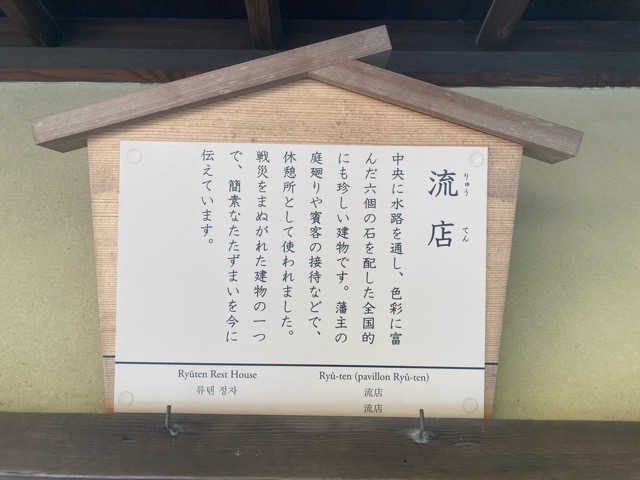 流店
りゅうてん
中央に水路を通し、色彩に富
んだ六個の石を配した全国的
にも珍しい建物です。藩主の
庭廻りや賓客の接待などで、
休憩所として使われました。
戦災をまぬがれた建物の一つ
で、簡素なたたずまいを今に
伝えています。
Ryūten Rest House
류텐 정자
Ryû-ten (pavillon Ryû-ten)
流店
流店